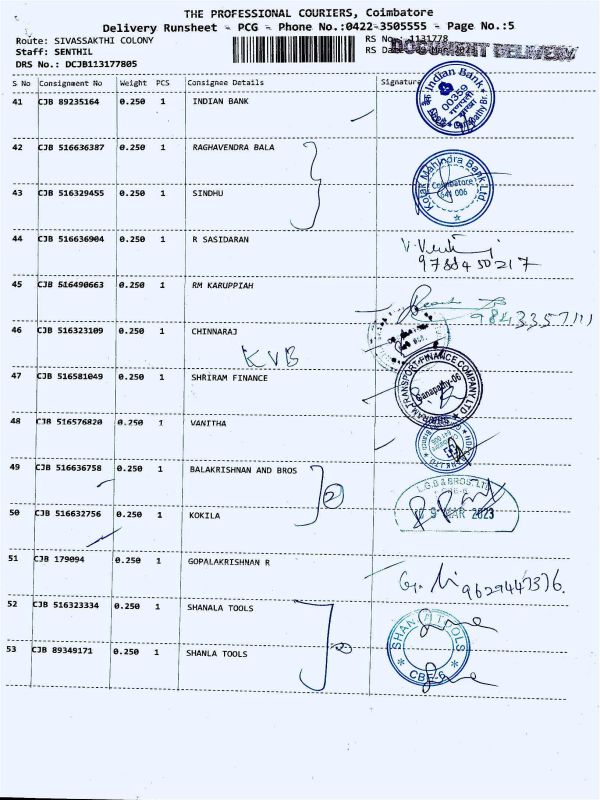 THE PROFESSIONAL COURIERS, Coimbatore
Delivery Runsheet - PCG - Phone No.:0422-3505555 - Page No.:5
Route: SIVASSAKTHI COLONY
RS No.: 1131778
Staff: SENTHIL
RS Da
DOCUMENT DELIVERY
DRS No.: DCJB113177805
S No Consignment No Weight PCS Consignee Details Signature
41 CJB 89235164 0.250 1 INDIAN BANK
Indian Bank
00359
42 CJB 516636387 0.250 1 RAGHAVENDRA BALA
43 CJB 516329455 0.250 1 SINDHU
Kotak Mahindra Bank Ltd.
Coimbatore
641 006
44 CJB 516636904 0.250 1 R SASIDARAN
9788450217
45 CJB 516490663 0.250 1 RM KARUPPIAH
9843357111
46 CJB 516323109 0.250 1 CHINNARAJ
KVB
47 CJB 516581049 0.250 1 SHRIRAM FINANCE
SHRIRAM TRANSPORT FINANCE COMPANY LTD
Ganapathy-06
48 CJB 516576820 0.250 1 VANITHA
49 CJB 516636758 0.250 1 BALAKRISHNAN AND BROS
2
L.G.B & BROS. LTD
9 MAR 2023
50 CJB 516632756 0.250 1 KOKILA
51 CJB 179094 0.250 1 GOPALAKRISHNAN R
9629447376.
52 CJB 516323334 0.250 1 SHANALA TOOLS
53 CJB 89349171 0.250 1 SHANLA TOOLS
SHANLA TOOLS
CBE-6